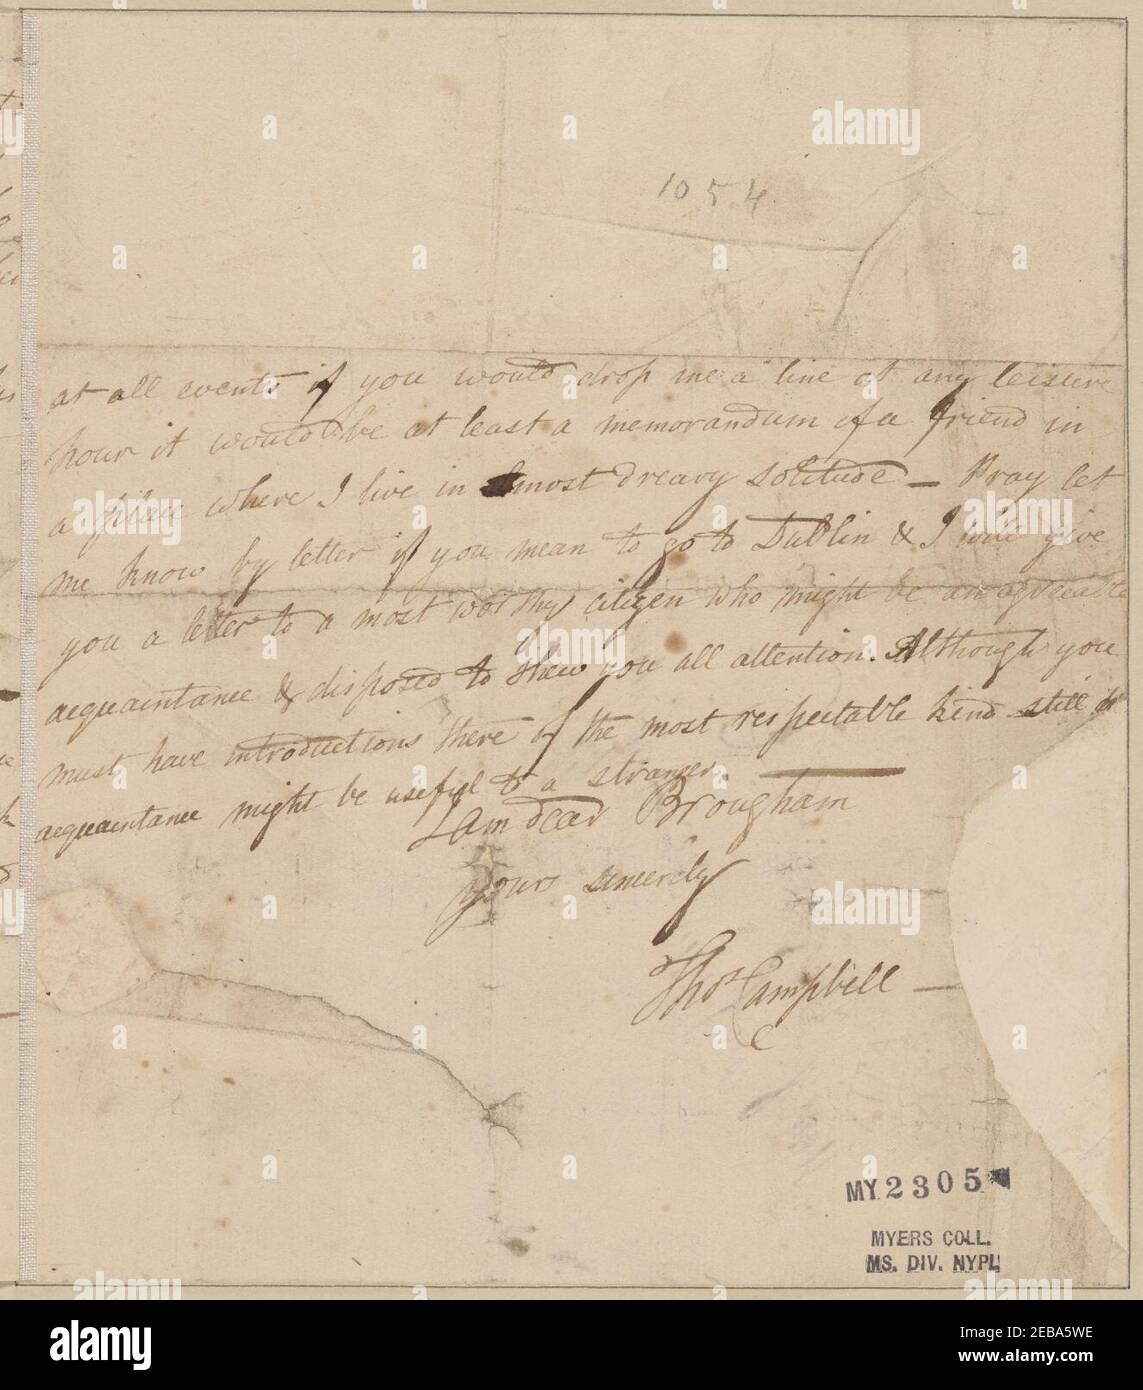 1054
at all events if you would drop me a line at any leisure
hour it would be at least a memorandum of a friend in
a place where I live in almost dreary solitude – Pray let
me know by letter if you mean to go to Dublin & I will give
you a letter to a most worthy citizen who might be an agreeable
acquaintance & disposed to shew you all attention. Although you
must have introductions there of the most respectable kind still
acquaintance might be useful to a stranger. —
I am dear Brougham
yours sincerely
Thos Campbell —
MY 2305
MYERS COLL.
MS. DIV. NYPL
alamy
Image ID: 2EBA5WE
www.alamy.com